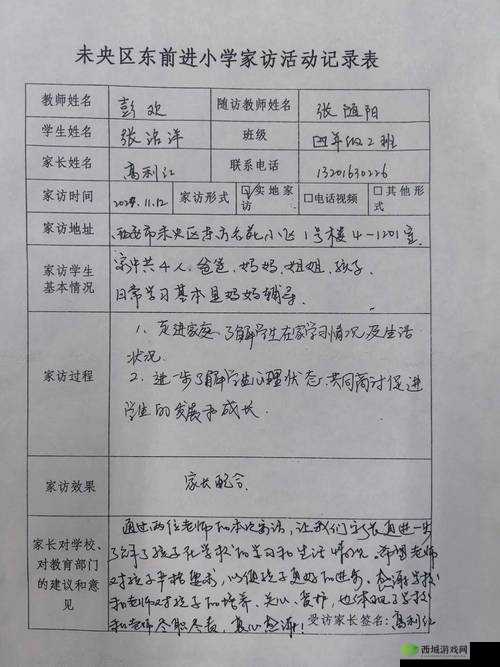 未央区东前进小学家访活动记录表
教师姓名 彭欢 随访教师姓名 张随阳
学生姓名 张洺洋 班级 四年级2班
家长姓名 高利红 联系电话 13201630226
家访时间 2024.11.12 家访形式 ☑实地家访 □电话视频 □其他形式
家访地址 西安市未央区东方名苑小区1号楼4-1201室
家访学生基本情况
家中共4人,爸爸、妈妈、姐姐、孩子.
日常学习基本是妈妈辅导.
家访过程
1、走进家庭、了解学生在家学习情况及生活
状况.
2、进一步了解学生心理状态,共同商讨促进
学生的发展和成长.
家访效果 家长配合.
家长对学校、对教育部门的建议和意见
通过两位老师的本次家访,让我们家长更进一步
了解了孩子在学校的学习和生活情况。希望老师
对孩子严格要求,以便孩子更好的进步,感谢学校
和老师对孩子的培养、关心、爱护,也体现了学校
和老师尽职尽责,真心感谢!
受访家长签名:高利红
西城游戏网